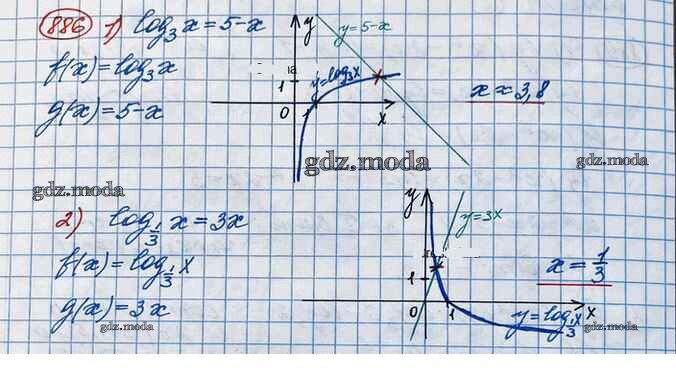 886 1) log₃x = 5-x
f(x) = log₃x
g(x) = 5-x
y
y=5-x
y=log₃x
1
0
1
x
x ≈ 3,8
gdz.moda
gdz.moda
gdz.moda
2) log_{1/3} x = 3x
f(x) = log_{1/3} x
g(x) = 3x
y
y=3x
1
0
1
x
y=log_{1/3} x
x = 1/3
gdz.moda
gdz.moda